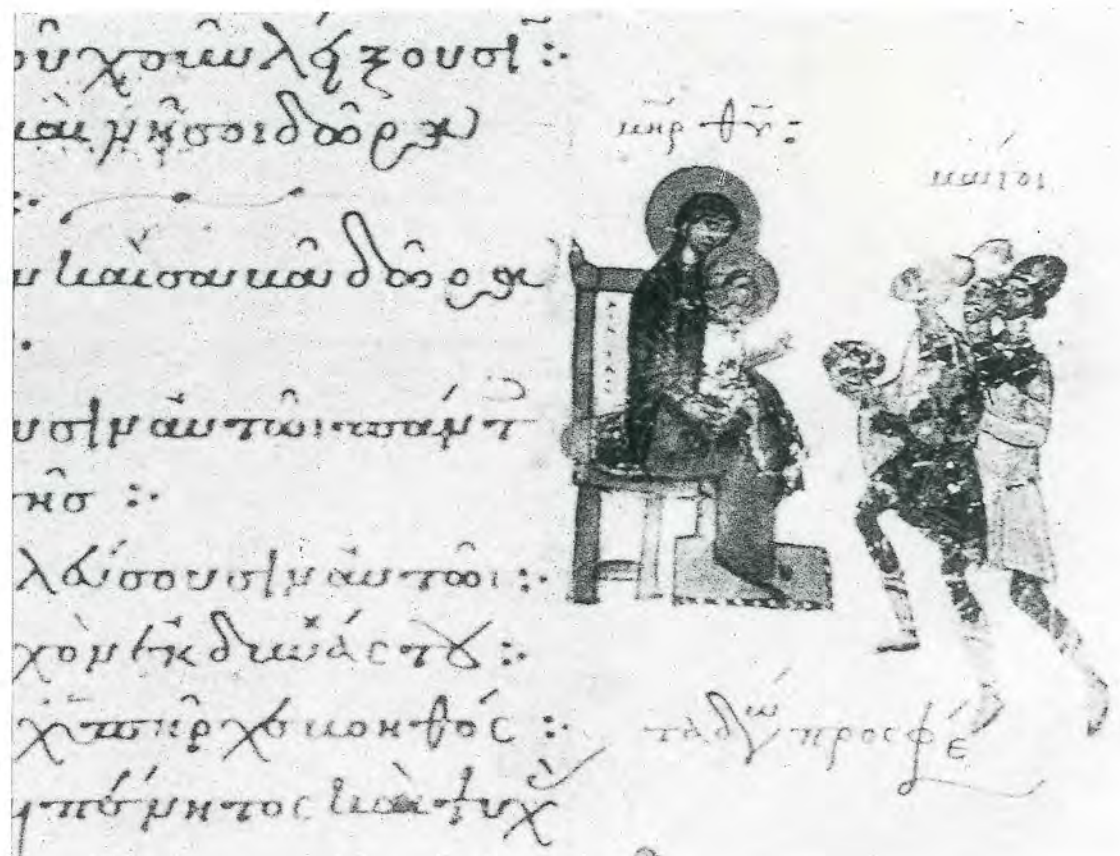 οῦ χοῦν λείξουσι :·
καὶ νῆσοι δῶρα
:·
ν καὶ σαβὰ δῶρα
·
υσιν αὐτῶι πάντ
γῆσ :·
λεύσουσιν αὐτῶι :·
χὸν ἐκ δυνάστου :·
χ ὑπῆρχε βοηθός :·
πένητος καὶ ψυχ
μηρ θυ :
τὰ δῶ προσφέ